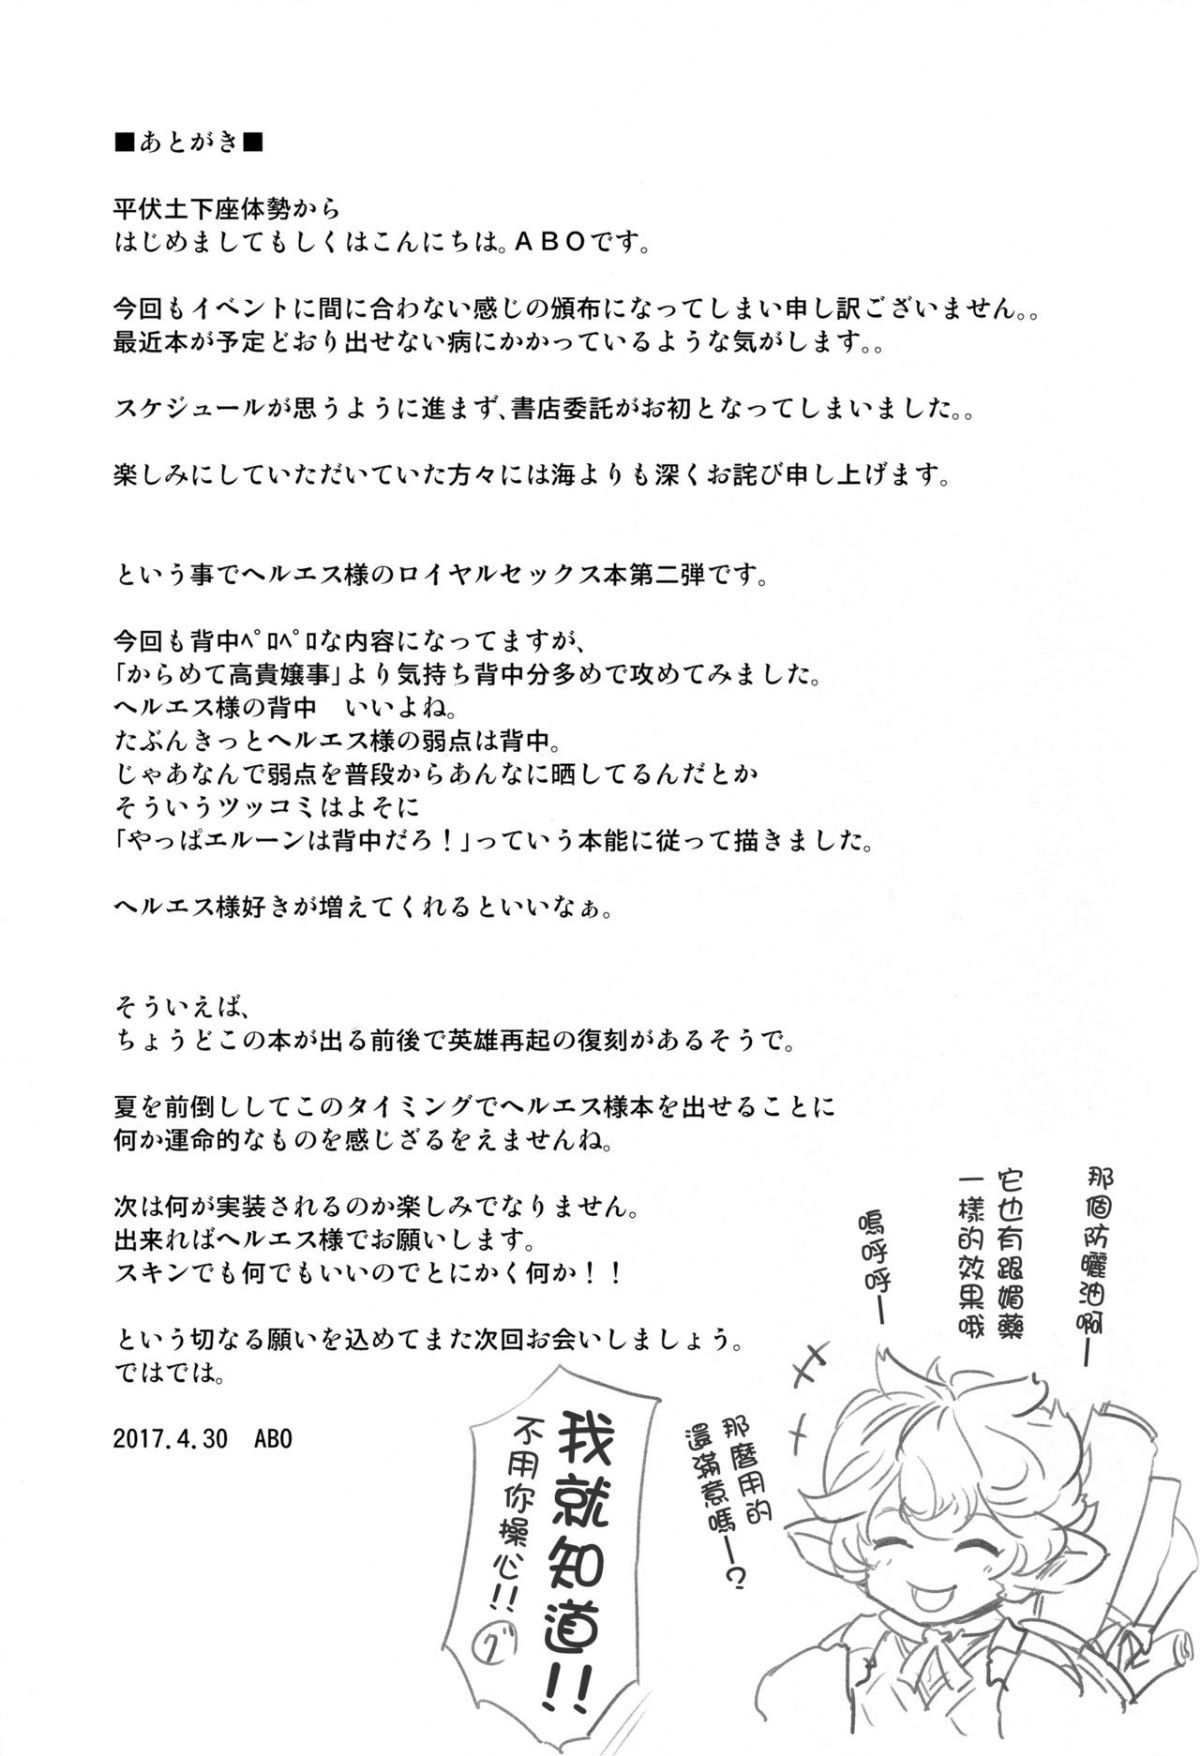 ■あとがき■
平伏土下座体勢から
はじめましてもしくはこんにちは。ＡＢＯです。
今回もイベントに間に合わない感じの頒布になってしまい申し訳ございません。。
最近本が予定どおり出せない病にかかっているような気がします。。
スケジュールが思うように進まず、書店委託がお初となってしまいました。。
楽しみにしていただいていた方々には海よりも深くお詫び申し上げます。
という事でヘルエス様のロイヤルセックス本第二弾です。
今回も背中ﾍﾟﾛﾍﾟﾛな内容になってますが、
「からめて高貴嬢事」より気持ち背中分多めで攻めてみました。
ヘルエス様の背中　いいよね。
たぶんきっとヘルエス様の弱点は背中。
じゃあなんで弱点を普段からあんなに晒してるんだとか
そういうツッコミはよそに
「やっぱエルーンは背中だろ！」っていう本能に従って描きました。
ヘルエス様好きが増えてくれるといいなぁ。
そういえば、
ちょうどこの本が出る前後で英雄再起の復刻があるそうで。
夏を前倒ししてこのタイミングでヘルエス様本を出せることに
何か運命的なものを感じざるをえませんね。
次は何が実装されるのか楽しみでなりません。
出来ればヘルエス様でお願いします。
スキンでも何でもいいのでとにかく何か！！
という切なる願いを込めてまた次回お会いしましょう。
ではでは。
2017.4.30　ABO
那個防曬油啊—
它也有跟媚藥
一樣的效果哦
嗚呼呼—
那麼用的
還滿意嗎—?
我就知道!!
不用你操心!!
グ